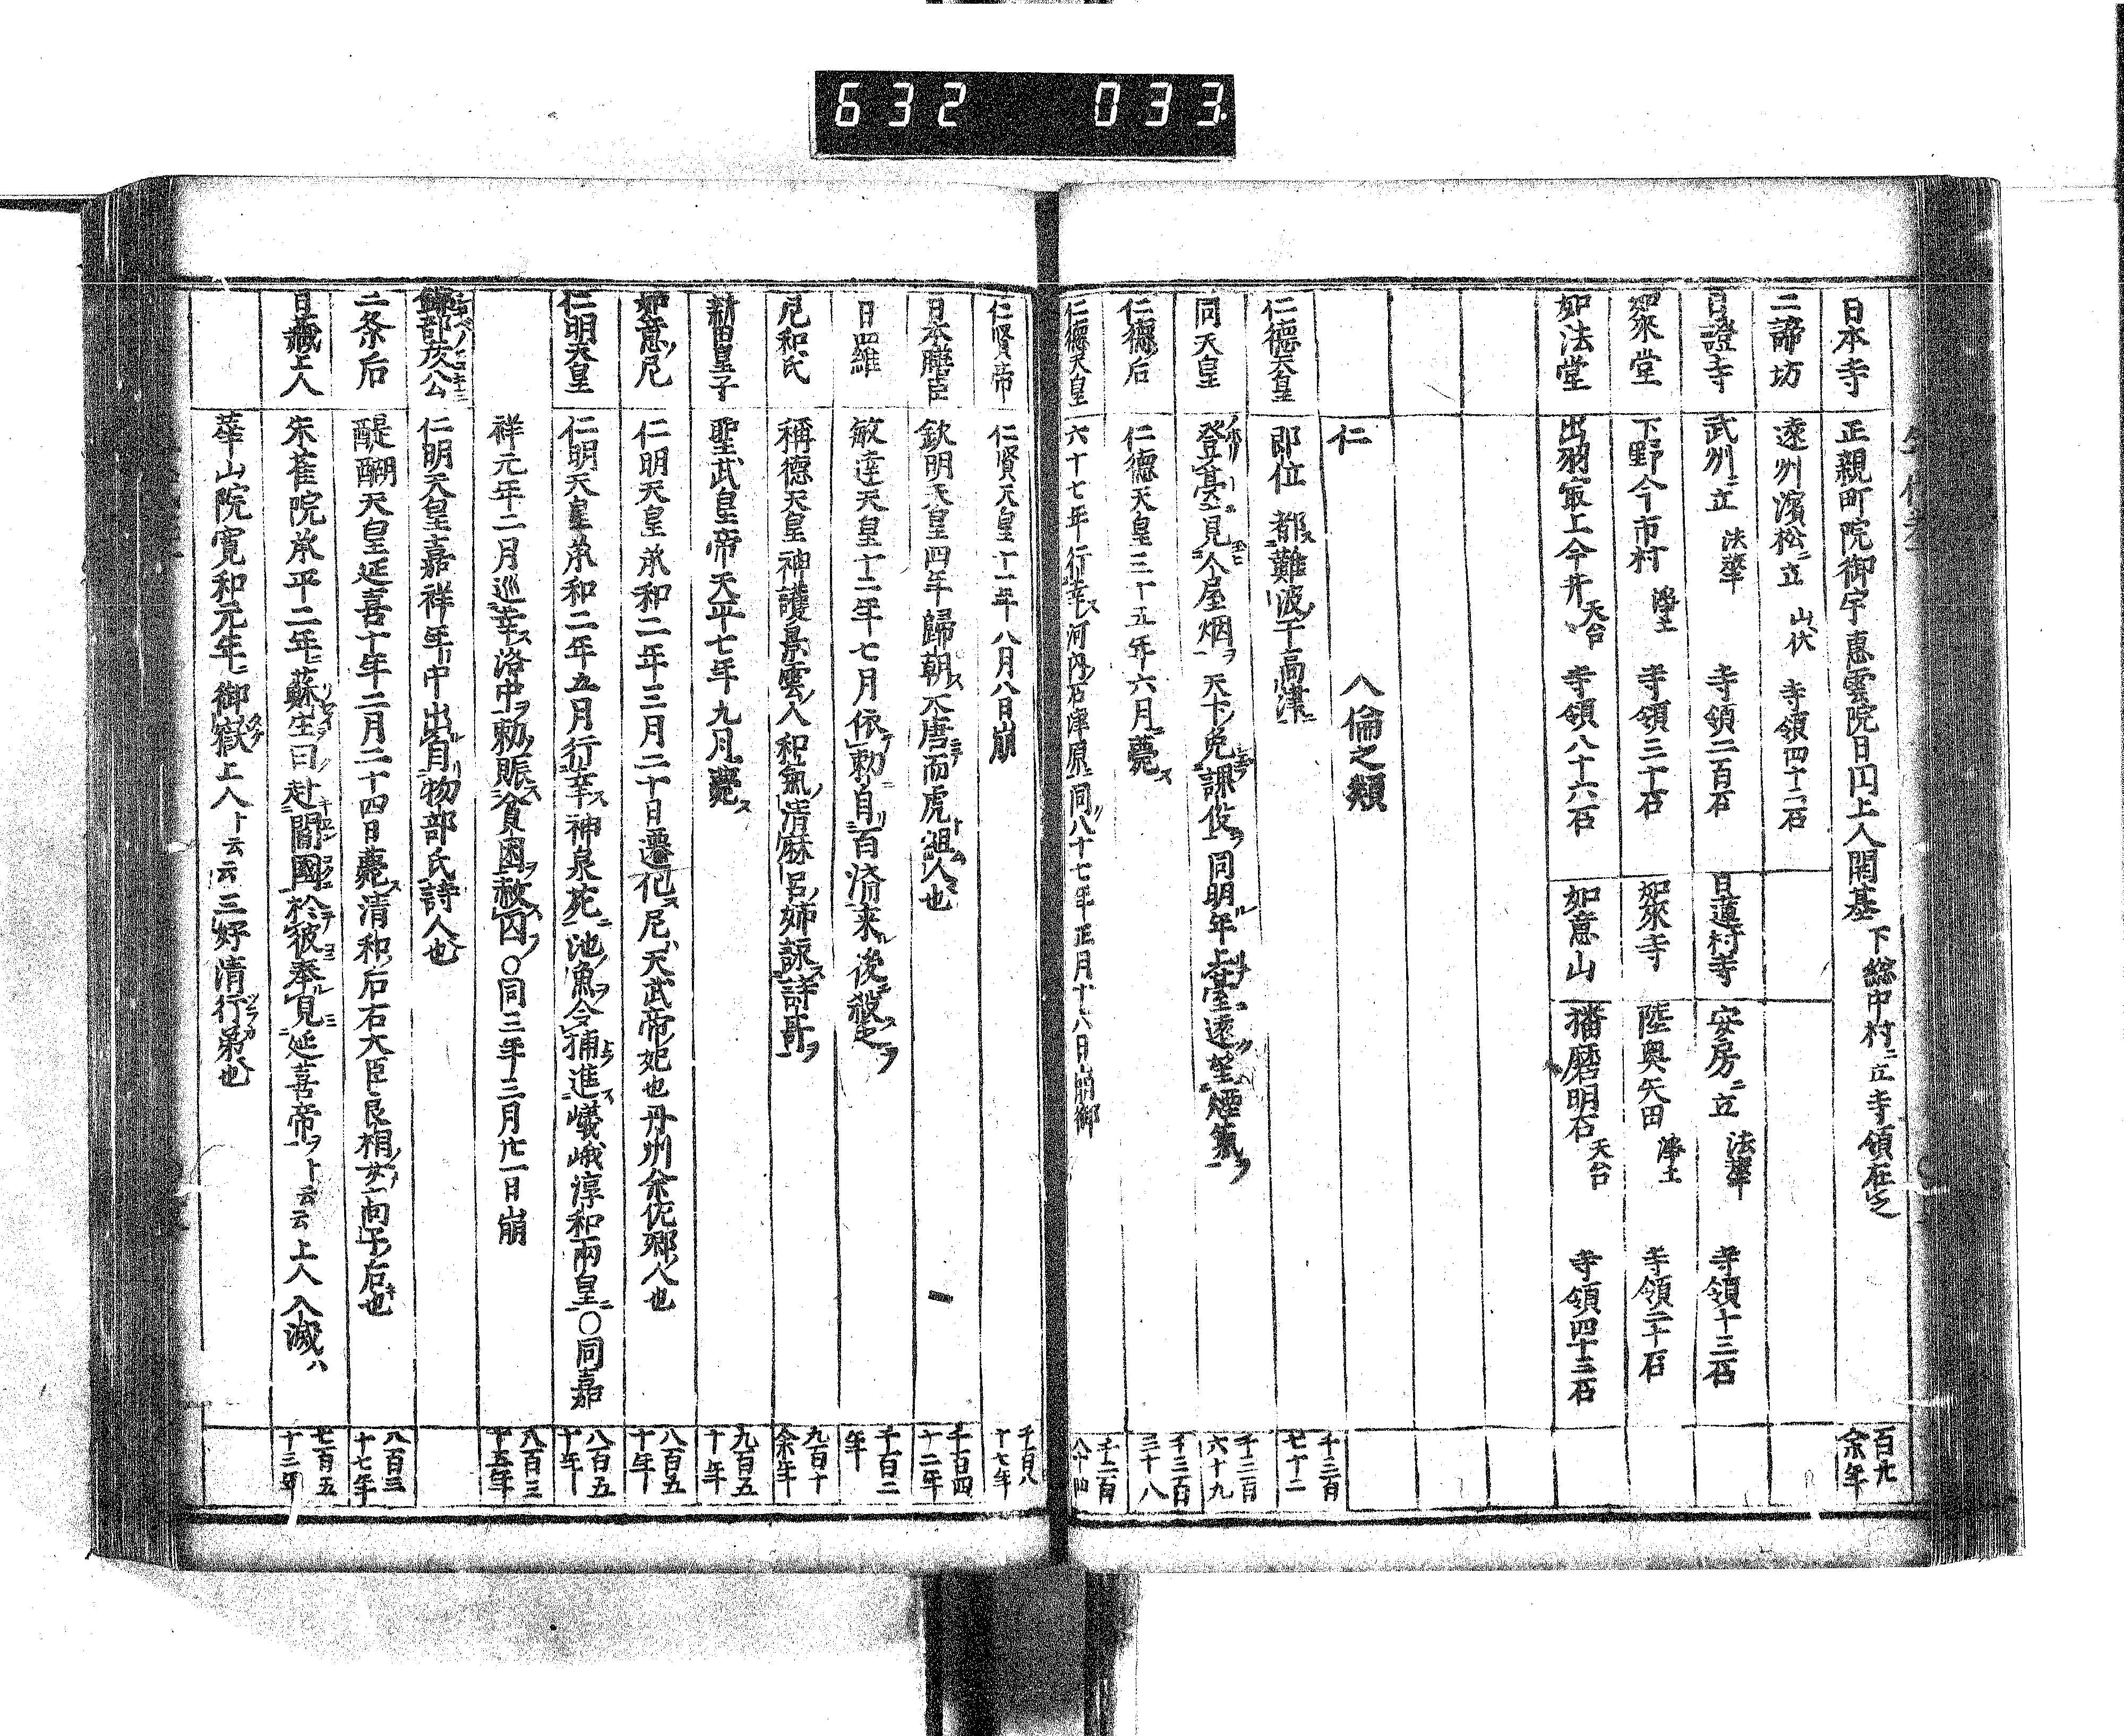 632 033
日本寺 正親町院御宇惠雲院日円上人開基 下総中村ニ立寺領在之 百九余年
二諦坊 遠州濱松ニ立 山伏 寺領四十二石
日證寺 武州ニ立 法華 寺領二百石 日蓮村寺 安房ニ立 法華 寺領十三石
如來堂 下野今市村 淨土 寺領三十石 如來寺 陸奥矢田 淨土 寺領二十石
如法堂 出羽最上今井 天台 寺領八十六石 如意山 播磨明石 天台 寺領四十三石
仁 人倫之類
仁德天皇 即位都難波ノ高津ニ 千三百七十二
同天皇 登臺見人屋烟ヲ天下ノ免課役ヲ同明年上臺遠望煙氣ヲ 千三百六十九
仁德ノ后 仁德天皇三十五年六月薨ス 千三百三十八
仁德天皇 六十七年行幸ス河内ノ石津原ニ同八十七年正月十八日崩御 千二百八十四
仁賢帝 仁賢天皇十一年八月八日崩 千百八十七年
日本膳臣 欽明天皇四年歸朝ス大唐ニテ而虎狙人也 千百四十二年
日羅 敏達天皇十二年七月依勅ニ自百済来ル後ニ殺スヲ之 千百二年
尼和氏 稱德天皇神護景雲ノ人和氣ノ清麻呂ノ姉詠ス詩哥ヲ 九百十余年
新田皇子 聖武皇帝天平七年九月薨ス 九百五十年
如意ノ尼 仁明天皇承和二年三月二十日遷化ス尼ハ天武帝ノ妃也丹州余佐郷ノ人也 八百五十年
仁明天皇 仁明天皇承和二年五月行幸ス神泉苑ニ池ノ魚ヲ令捕進ス嵯峨淳和両皇ニ〇同嘉 八百五十年
祥元年二月巡幸ス洛中ヲ勅ノ賑ス貧困ヲ赦ス囚ヲ〇同三年三月廿一日崩 八百三十五年
仁明天皇嘉祥年中出自物部氏詩人也
二条后 醍醐天皇延喜十年二月二十四日薨ス清和ノ后右大臣良相ノ女一向下后也 八百三十七年
日藏上人 朱雀院承平二年ニ蘇生ノ曰赴閻國ニ於テ彼奉見延喜帝ヲト云云上人入滅ハ 七百五十三年
華山院寛和元年ニ御嶽上人ト云云三好清行ノ弟也